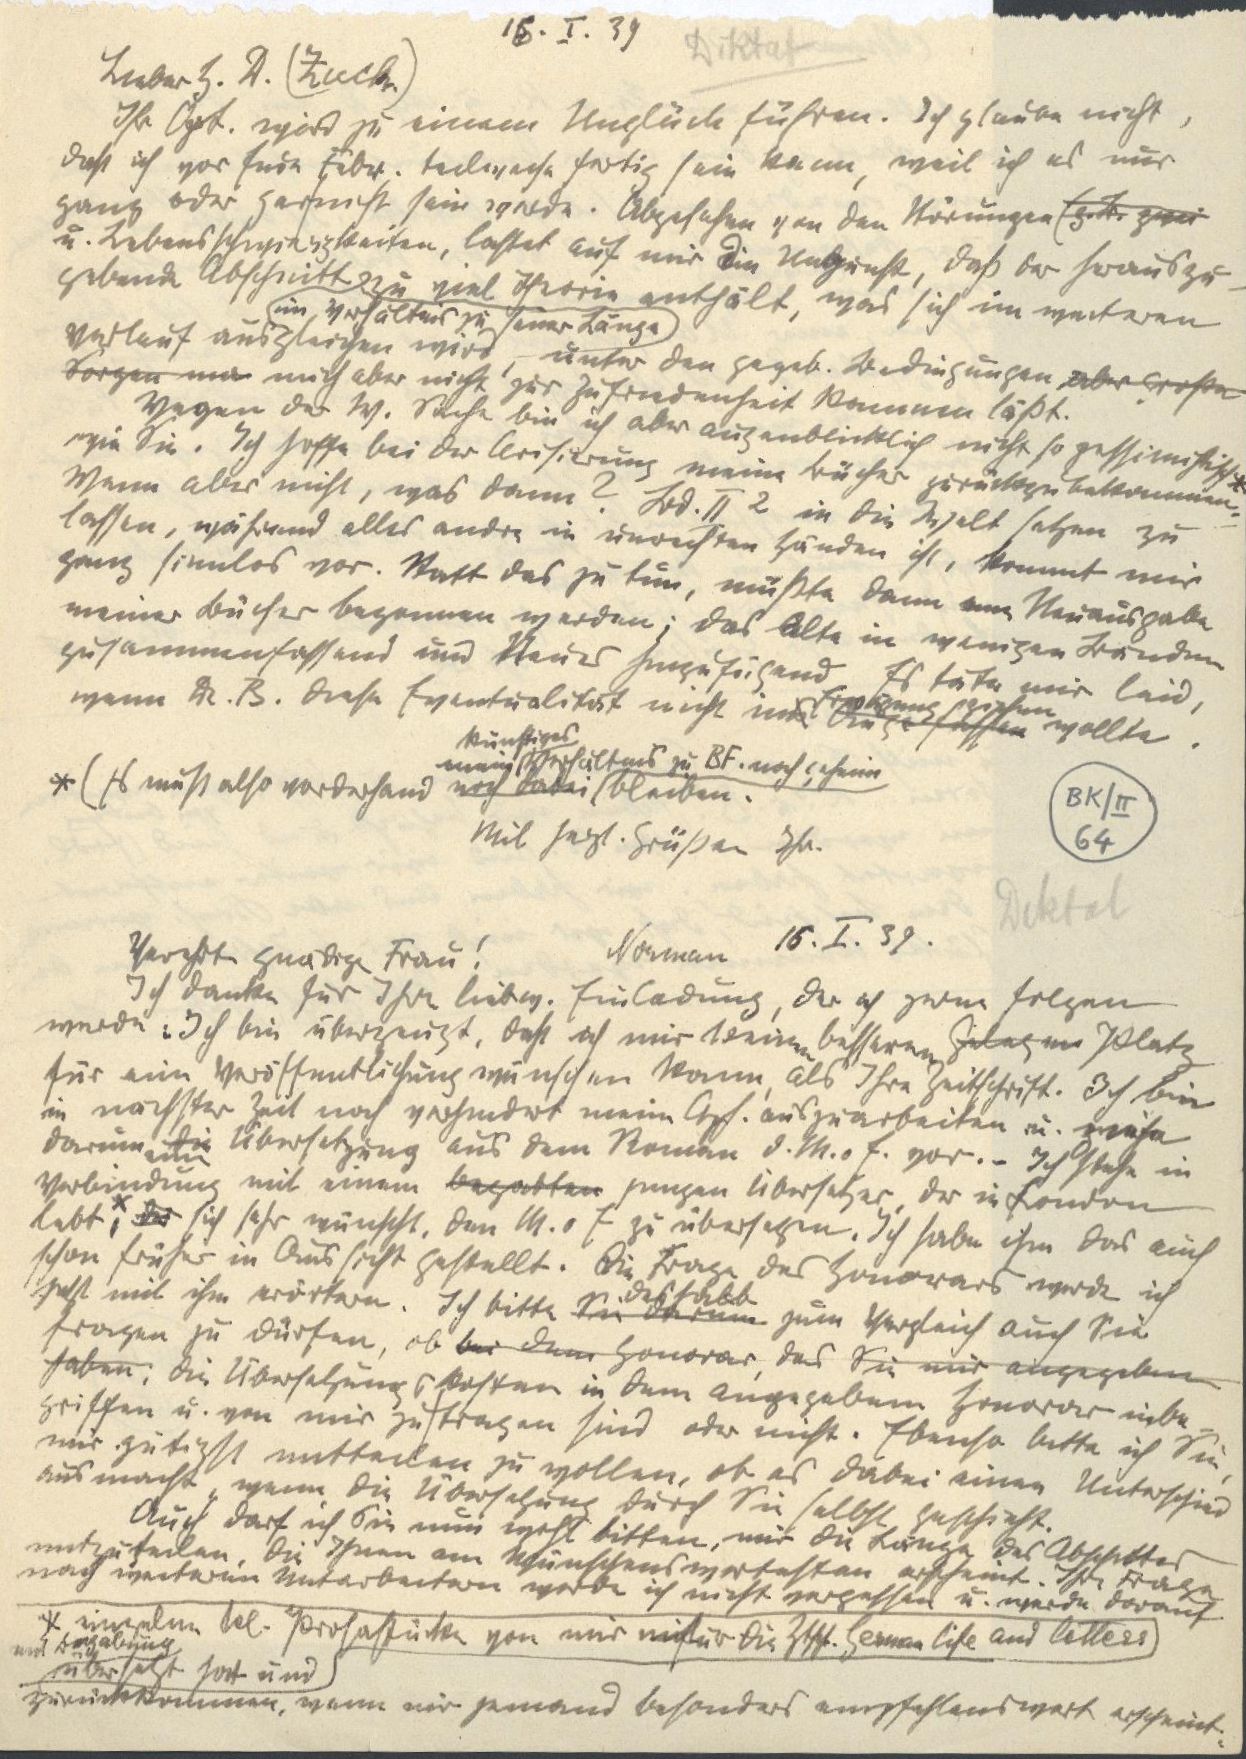 15. I. 39
Diktat
Lieber H. D. (Zuck.)
Ihr Opt. wird zu einem Unglück führen. Ich glaube nicht,
daß ich vor Ende Febr. teilweise fertig sein kann, weil ich es nur
ganz oder garnicht sein werde. Abgesehen von den Störungen
u. Lebensschwierigkeiten, lastet auf mir die Ungunst, daß der herauszu-
gebende Abschnitt zu viel Theorie enthält, was sich im weiteren
(im Verhältnis zu seiner Länge)
Verlauf ausgleichen wird, unter den gegeb. Bedingungen aber große
Sorgen mich aber nicht zur Zufriedenheit kommen läßt.
Wegen der W. Sache bin ich aber augenblicklich nicht so pessimistisch*
wie Sie. Ich hoffe bei der Arisierung meine Bücher zurückzubekommen.
Wenn aber nicht, was dann? Bd. II 2 in die Welt setzen zu
lassen, während alles andre in unrechten Händen ist, kommt mir
ganz sinnlos vor. Statt das zu tun, müßte dann eine Neuausgabe
meiner Bücher begonnen werden; das Alte in wenigen Bänden
zusammenfassend und Neues hinzufügend. Es täte mir leid,
wenn Dr. B. diese Eventualität nicht ins Auge fassen wollte.
Erwägung ziehen
künftiges
mein Verhältnis zu BF. noch geheim
* (Es muß also vorderhand noch dabei bleiben.
Mit herzl. Grüßen Ihr.
BK/II
64
Diktat
Norman 15. I. 39.
Verehrte gnädige Frau!
Ich danke für Ihre liebw. Einladung, der ich gerne folgen
werde. Ich bin überzeugt, daß ich mir keinen besseren Platz
für eine Veröffentlichung wünschen kann, als Ihre Zeitschrift. Ich bin
in nächster Zeit noch verhindert meine Aph. auszuarbeiten u.
darum die Übersetzung aus dem Roman d. M. o E. vor. – Ich stehe in
eine
Verbindung mit einem begabten jungen Übersetzer, der in London
lebt,* der sich sehr wünscht, den M. o E zu übersetzen. Ich habe ihm das auch
schon früher in Aussicht gestellt. Die Frage des Honorars werde ich
jetzt mit ihm erörtern. Ich bitte Sie darum zum Vergleich auch Sie
deshalb
fragen zu dürfen, ob bei dem Honorar, das Sie mir angegeben
haben, die Übersetzungskosten in dem angegebenen Honorar inbe-
griffen u. von mir zu tragen sind oder nicht. Ebenso bitte ich Sie,
mir gütigst mitteilen zu wollen, ob es dabei einen Unterschied
ausmacht, wenn die Übersetzung durch Sie selbst geschieht.
Auch darf ich Sie nun wohl bitten, mir die Länge des Abschnittes
mitzuteilen, die Ihnen am wünschenswertesten erscheint. Ihre Frage
nach weiteren Mitarbeitern werde ich nicht vergessen u. werde darauf
* einzelne kl. Prosastücke von mir für die Ztschft. German life and letters
mit Begabung
übersetzt hat und
zurückkommen, wenn mir jemand besonders empfehlenswert erscheint.